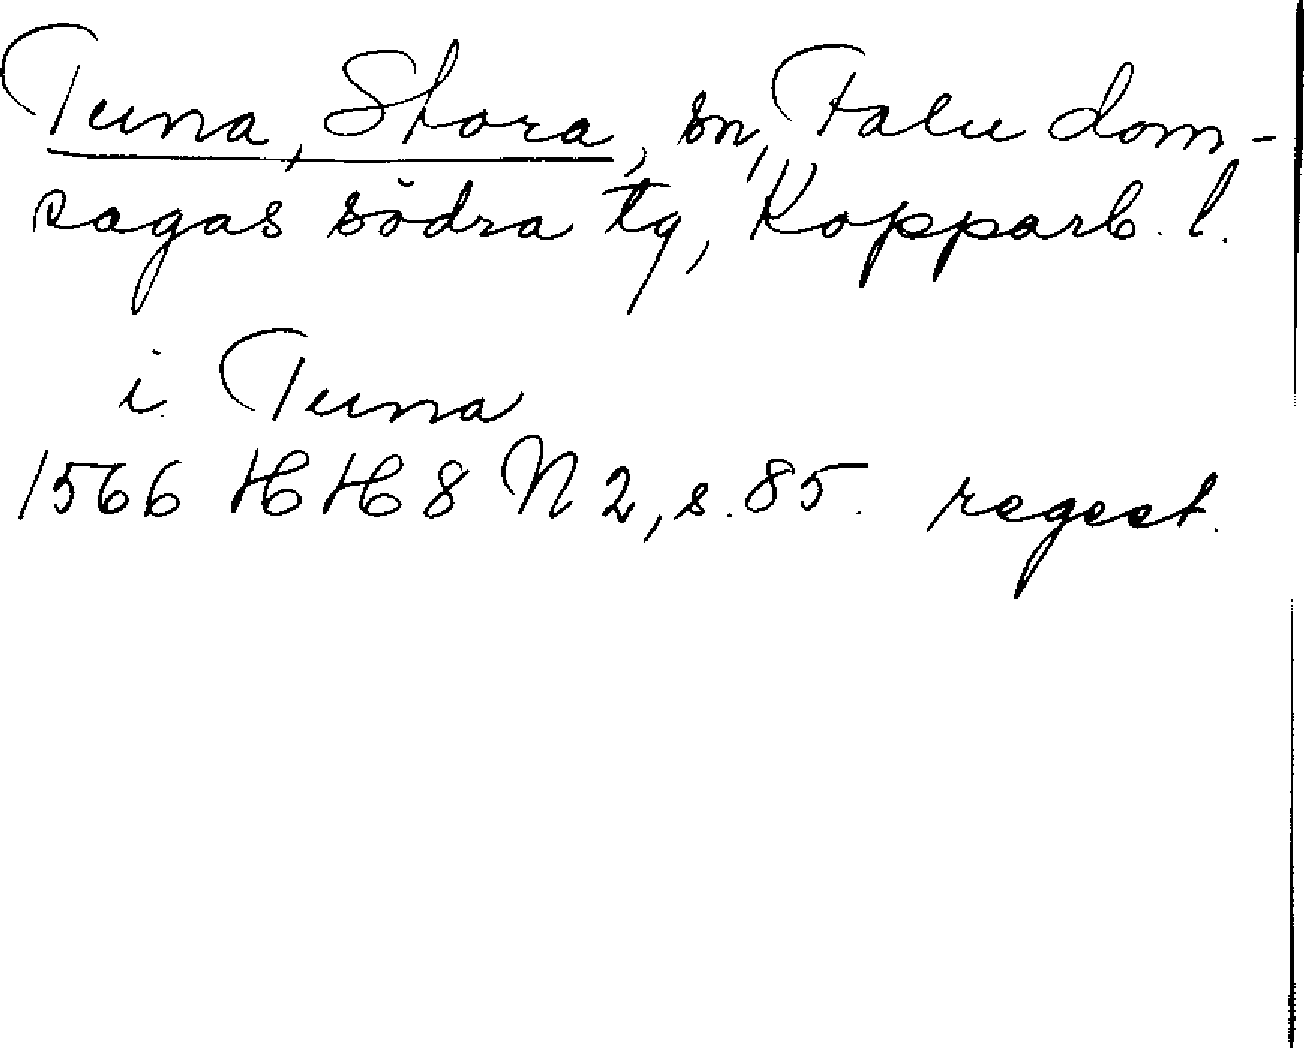 Tuna, Stora, sn, Falu dom-
sagas södra tg, Kopparb. l.
i Tuna
1566 HH 8 N 2, s. 85. regest.